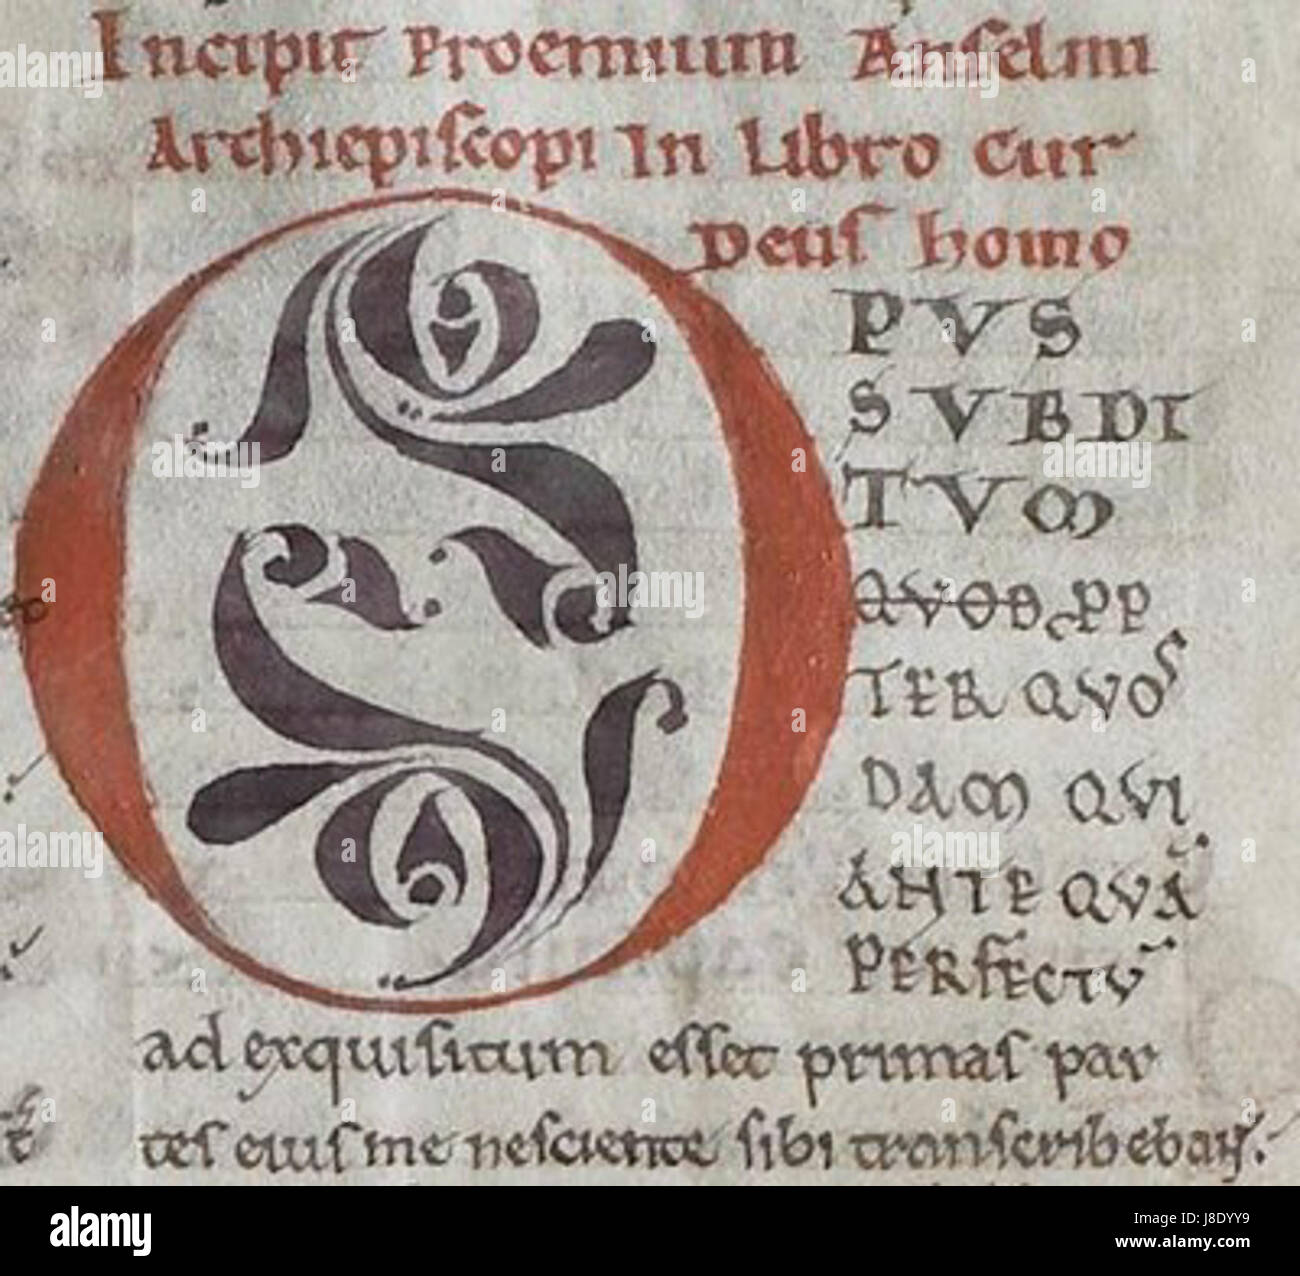 Incipit Proemium Anselmi
Archiepiscopi In Libro Cur
Deus homo
OPVS
SVBDI
TVM
QVOD PP
TER QVOS
DAM QVI
ANTEQVĀ
PERFECTV̄
ad exquisitum esset primas par
tes eius me nesciente sibi transcribebant.
alamy
Image ID: J8DYY9
www.alamy.com